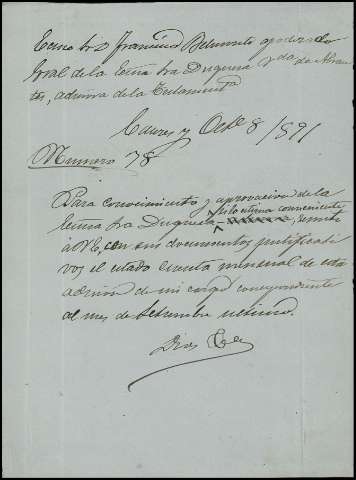 Excmo Sor Dn Francisco Belmonte apoderado
Gral de la Excma Sra Duquesa Vda de Abran-
tes, admora de la Testamentª
Cáceres y Octe 8/891
Numero 78
Para conocimiento y aprovacion de la
Excma Sra Duquesa si lo estima conveniente, remito
á V.E, con sus documentos justificati
vos el estado cuenta mensual de esta
admon de mi cargo correspondiente
al mes de Setiembre ultimo.
Dios &a